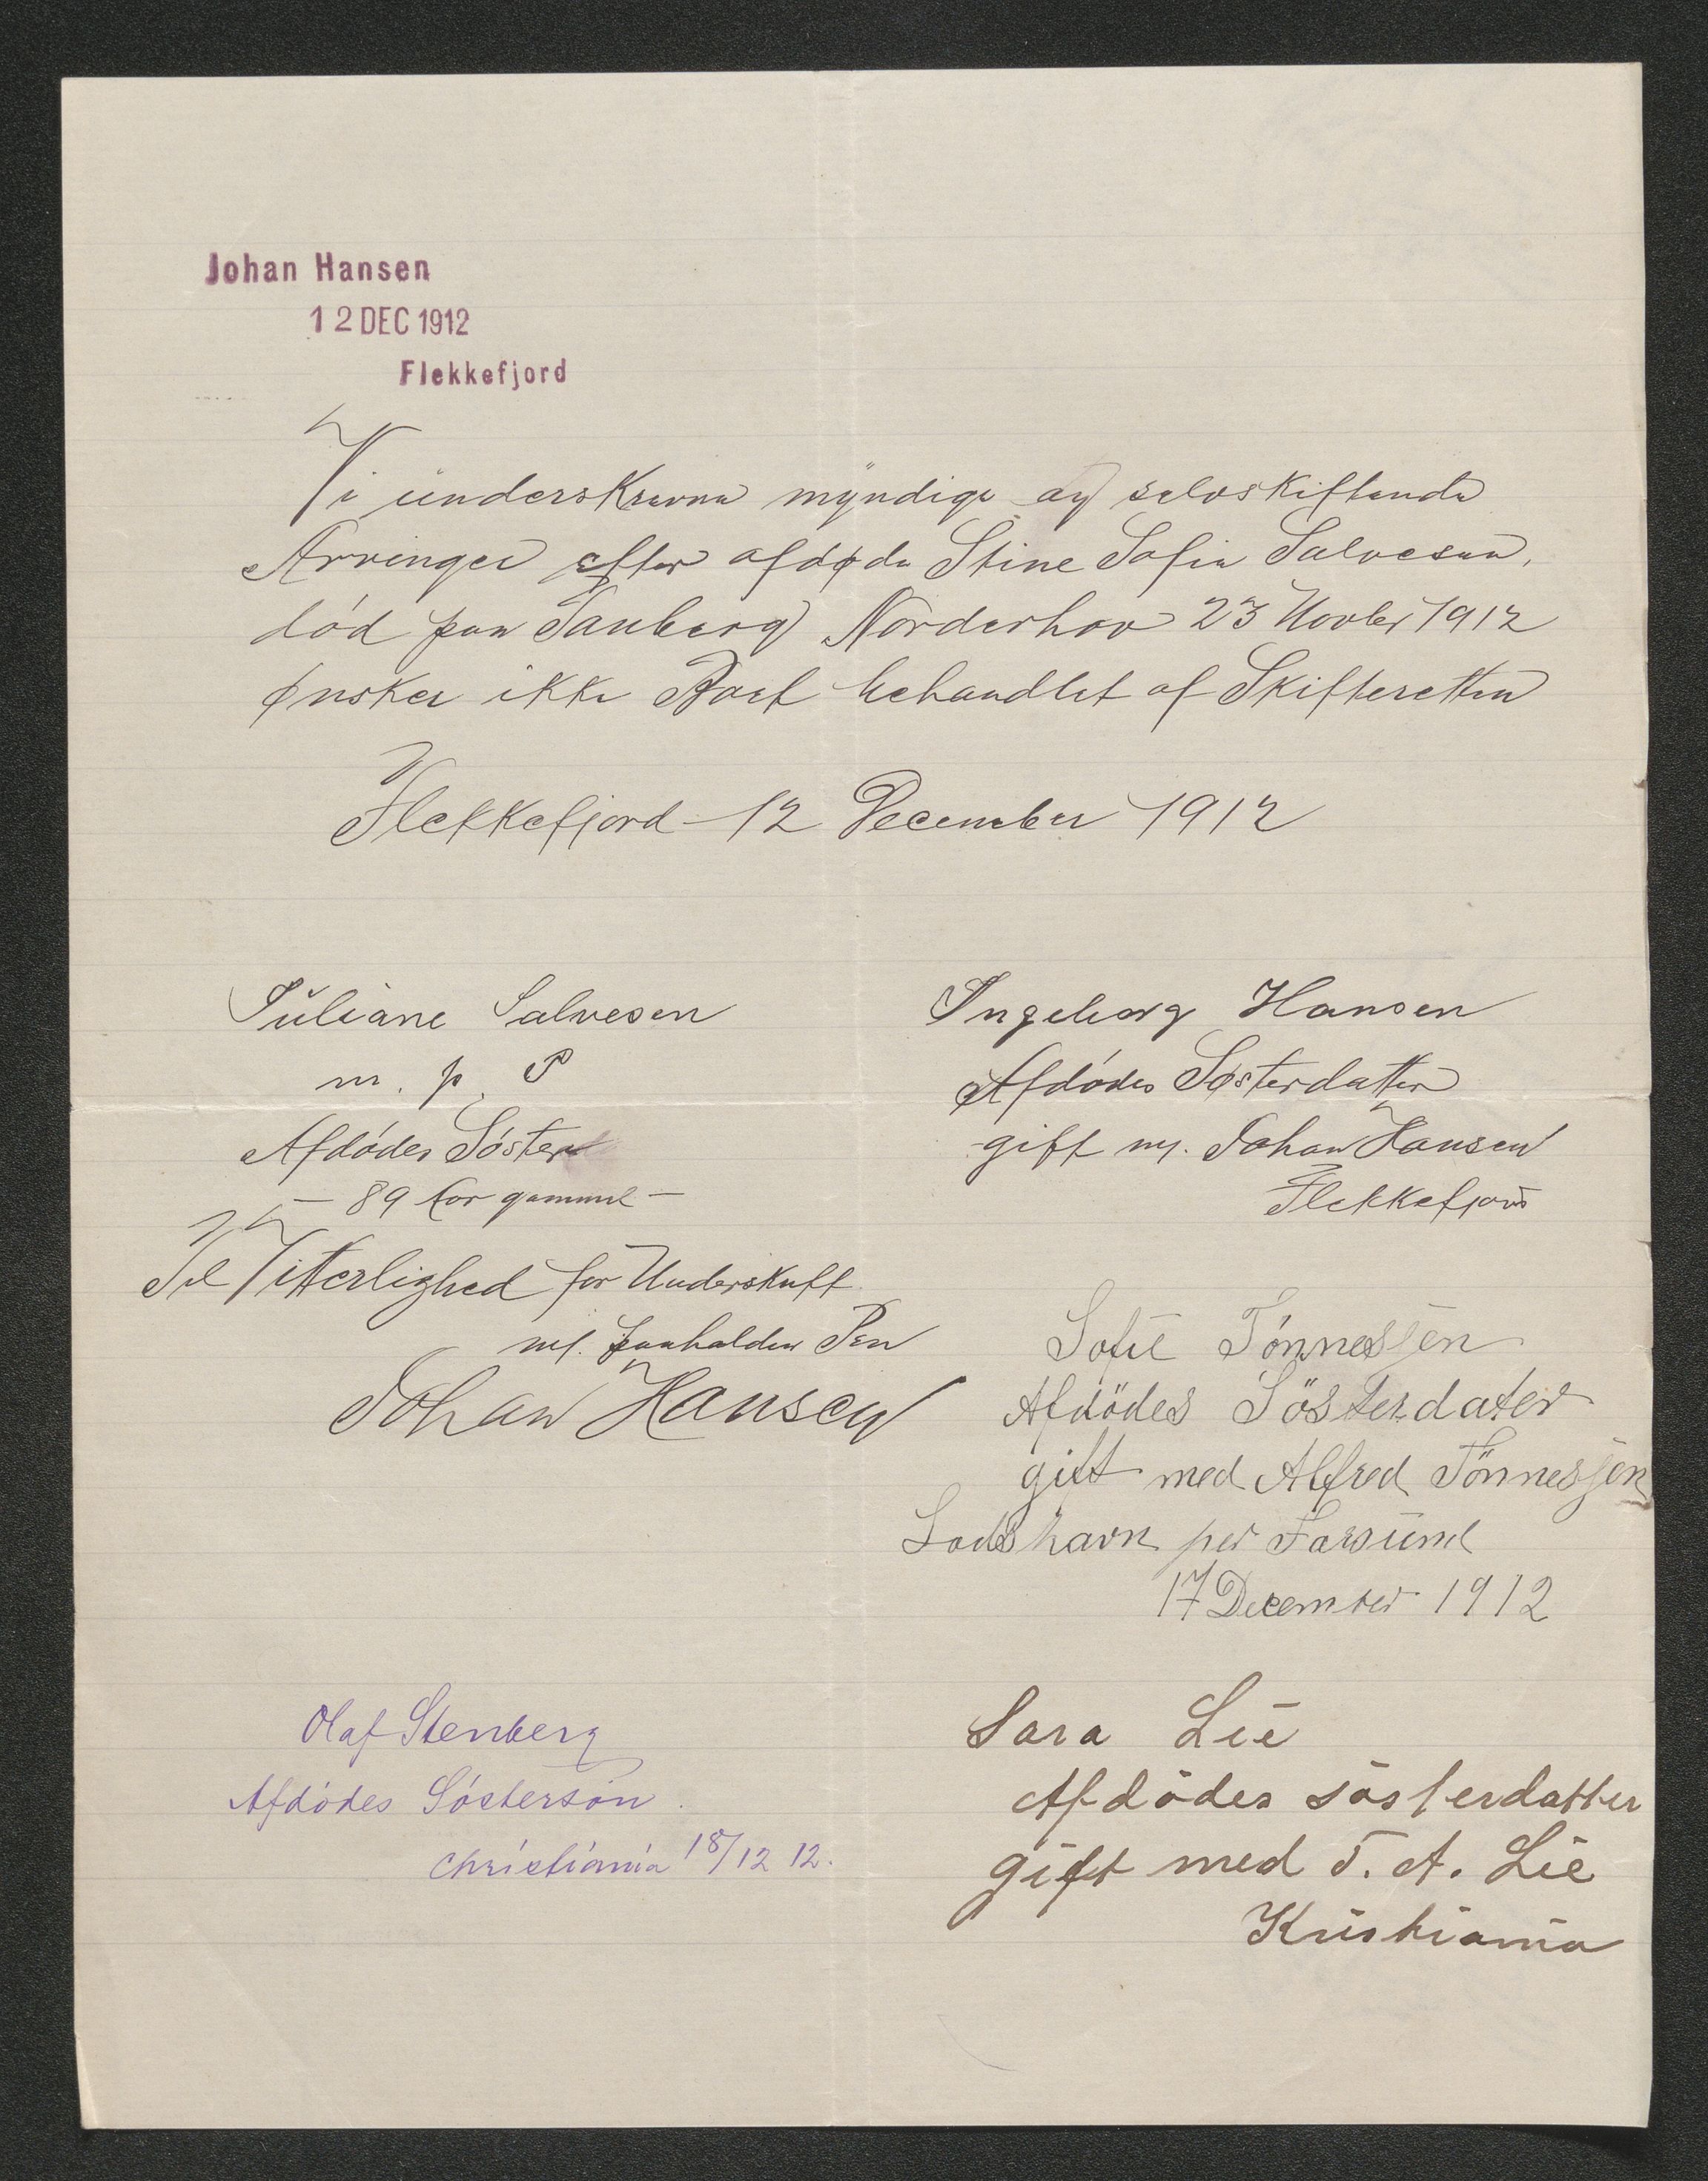 Johan Hansen
12 DEC 1912
Flekkefjord
Vi underskrevne myndige og selvskiftende
Arvinger efter afdøde Stine Sofie Salvesen,
död paa Tanberg Norderhov 23 Novbr 1912
ønsker ikke Boet behandlet af Skifteretten
Flekkefjord 12 December 1912
Juliane Salvesen
m. p. P
Afdödes Söster
- 89 Aar gammel -
Til Vitterlighed for Underskrift
m/. paaholden Pen
Johan Hansen
Ingeborg Hansen
Afdödes Søsterdatter
gift m/. Johan Hansen
Flekkefjord
Sofie Tönnessen
Afdödes Sösterdater
gift med Alfred Tönnessen
Lodshavn per Farsund
17 December 1912
Olaf Stenberg
Afdödes Søstersön.
Christiania 18/12 12.
Sara Lie
Afdödes sösterdatter
gift med T. A. Lie
Kristiania